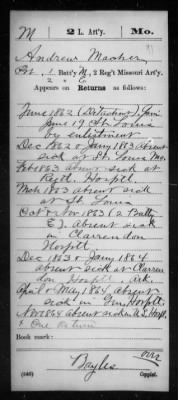 M 2 L. Art'y. Mo.
Andrew Mosher
Pvt. 1 Batt'y M, 2 Reg't Missouri Art'y.
2 " E
Appears on Returns as follows:
June 1862 (Detachment) Join
June 19 St Louis
by enlistment
Dec 1862 & Jany 1863 absent
sick at St. Louis Mo.
Feb 1863 absent sick at
Regtl. Hospt.
Mch 1863 absent sick
at St. Louis
Oct & Nov 1863 (2 Batty
E). Absent sick
in Clarendon
Hosptl
Dec 1863 & Jany 1864
absent sick at Claren-
don Hosptl, Ark.
April & May 1864, absent
sick in Gen. Hosptl.
Nov 1864 absent sick in Hosp
& One return
Book mark:
over
Bayles
(646) Copyist.